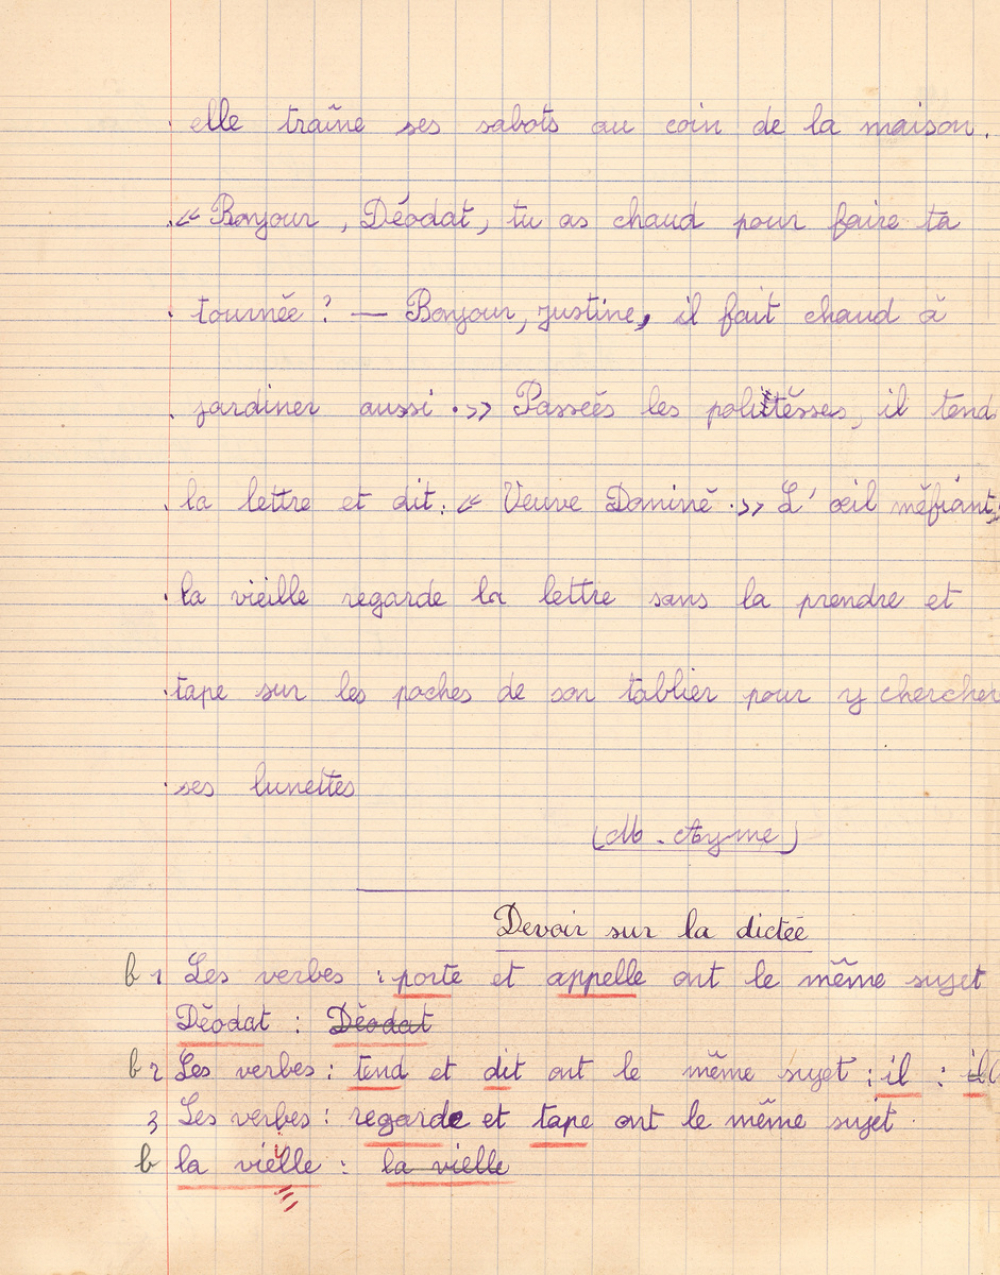 elle traîne ses sabots au coin de la maison.
« Bonjour, Déodat, tu as chaud pour faire ta
tournée ? — Bonjour, justine, il fait chaud à
jardiner aussi. » Passées les politesses, il tend
la lettre et dit : « Veuve Dominé. » L'œil méfiant,
la vieille regarde la lettre sans la prendre et
tape sur les poches de son tablier pour y chercher
ses lunettes
(M. Ayme)
Devoir sur la dictée
b 1 Les verbes : porte et appelle ont le même sujet
Déodat : Déodat
b 2 Les verbes : tend et dit ont le même sujet : il : il
3 Les verbes : regarde et tape ont le même sujet.
b la vielle : la vielle